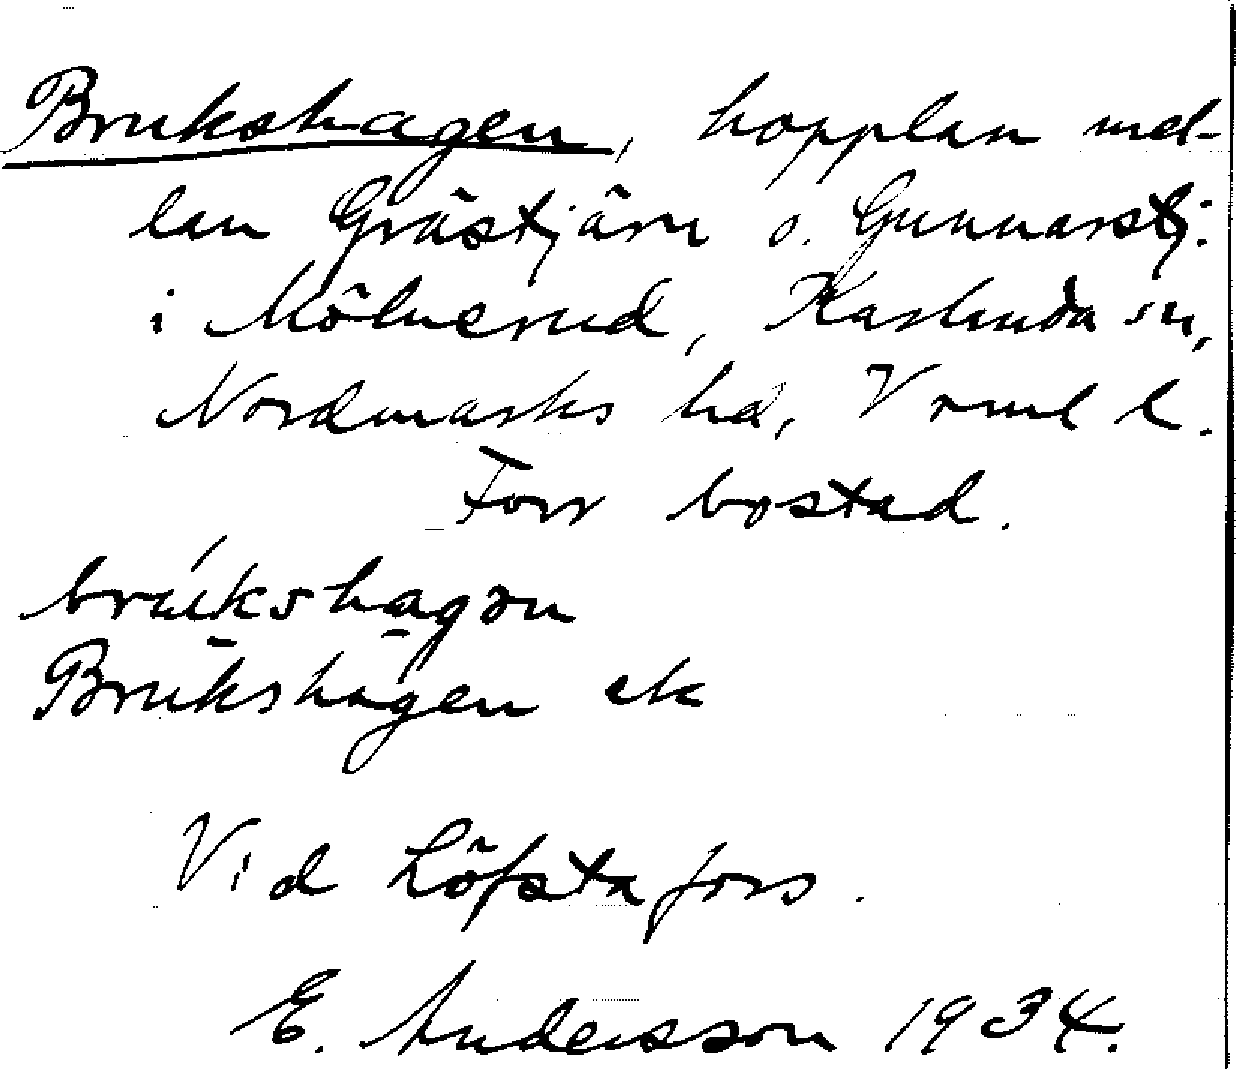 Brukshagen, hopplan mel-
lan Grästjärn o. Gunnarstj.
i Mölnerud, Karlanda sn,
Nordmarks hd, Vrml l.
Forr bostad.
brukshagən
Brukshagen ek
Vid Löfstafors.
E. Andersson 1934.